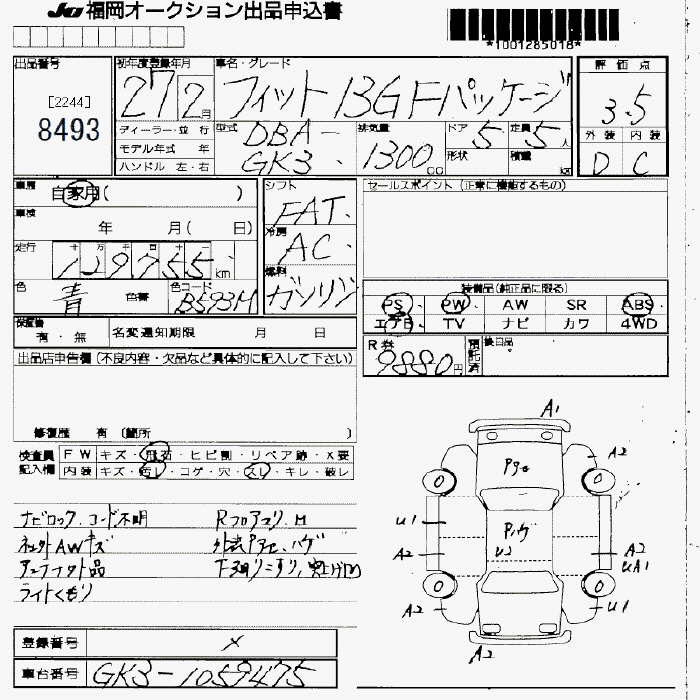 JU 福岡オークション出品申込書
*1001285018*
出品番号
[2244]
8493
初年度登録年月
27 2月
車名・グレード
フィット 13G Fパッケージ
評価点
3.5
外装 内装
D C
ディーラー・並行
モデル年式 年
ハンドル 左・右
型式
DBA-
GK3
排気量
1300cc
ドア 5
定員 5人
形状
積載 kg
車歴
自家用( )
車検
年 月( 日)
走行
十 万 千 百 十 一
129755km
色
青
色替
色コード
B593M
シフト
FAT
冷房
AC
燃料
ガソリン
セールスポイント(正常に機能するもの)
装備品(純正品に限る)
PS PW AW SR ABS
エアB TV ナビ カワ 4WD
保証書
有・無
名変通知期限 月 日
R券
9880円
預託済
後日品
出品店申告欄(不良内容・欠品など具体的に記入して下さい)
修復歴 有 (箇所 )
検査員記入欄
FW キズ・飛石・ヒビ割・リペア跡・X要
内装 キズ・汚レ・コゲ・穴・スレ・キレ・破レ
ナビロック、コード不明
AWキズ
ライトくもり
Rフロアマクリ、M
A1
A2
U1
A2
A2
Pハゲ
U2
A2
UA1
A2
U1
A2
登録番号 ×
車台番号 GK3-1059475